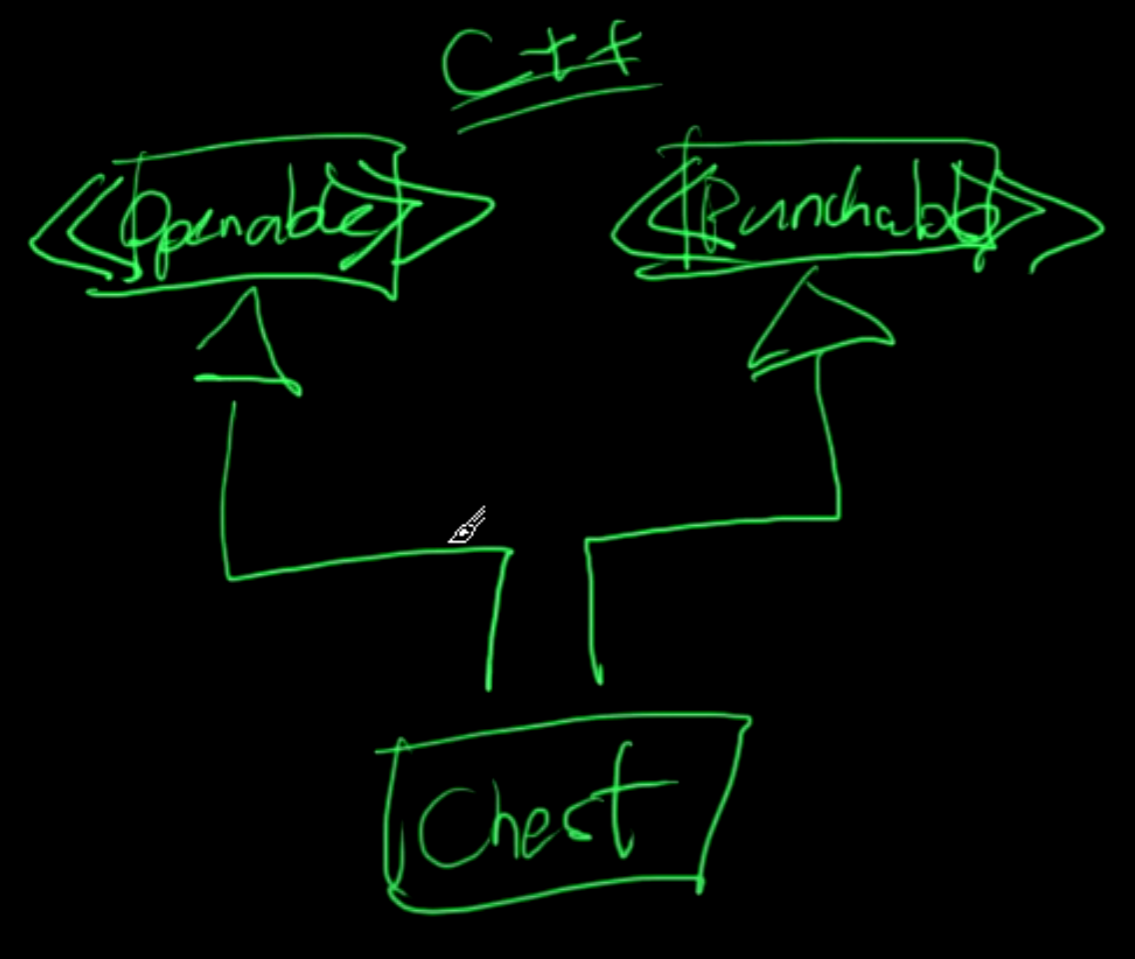 C++
<<Openable>>
<<Punchable>>
Chest